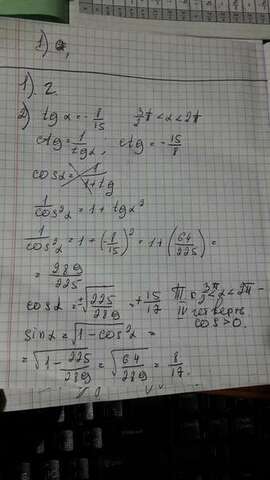 1)
1). 2.
2) tg α = - 8/15   3/2 π < α < 2π
ctg = 1/tgα, ctg = - 15/8
cosα = 1/1+tg
1/cos²α = 1 + tgα²
1/cos²α = 1 + (-8/15)² = 1 + (64/225) =
= 289/225
cosα = ±√225/289 = +15/17
Т.к 3π/2 < α < 2π -
IV четверть
cos > 0.
sinα = √1 - cos²α =
= √1 - 225/289 = √64/289 = 8/17.